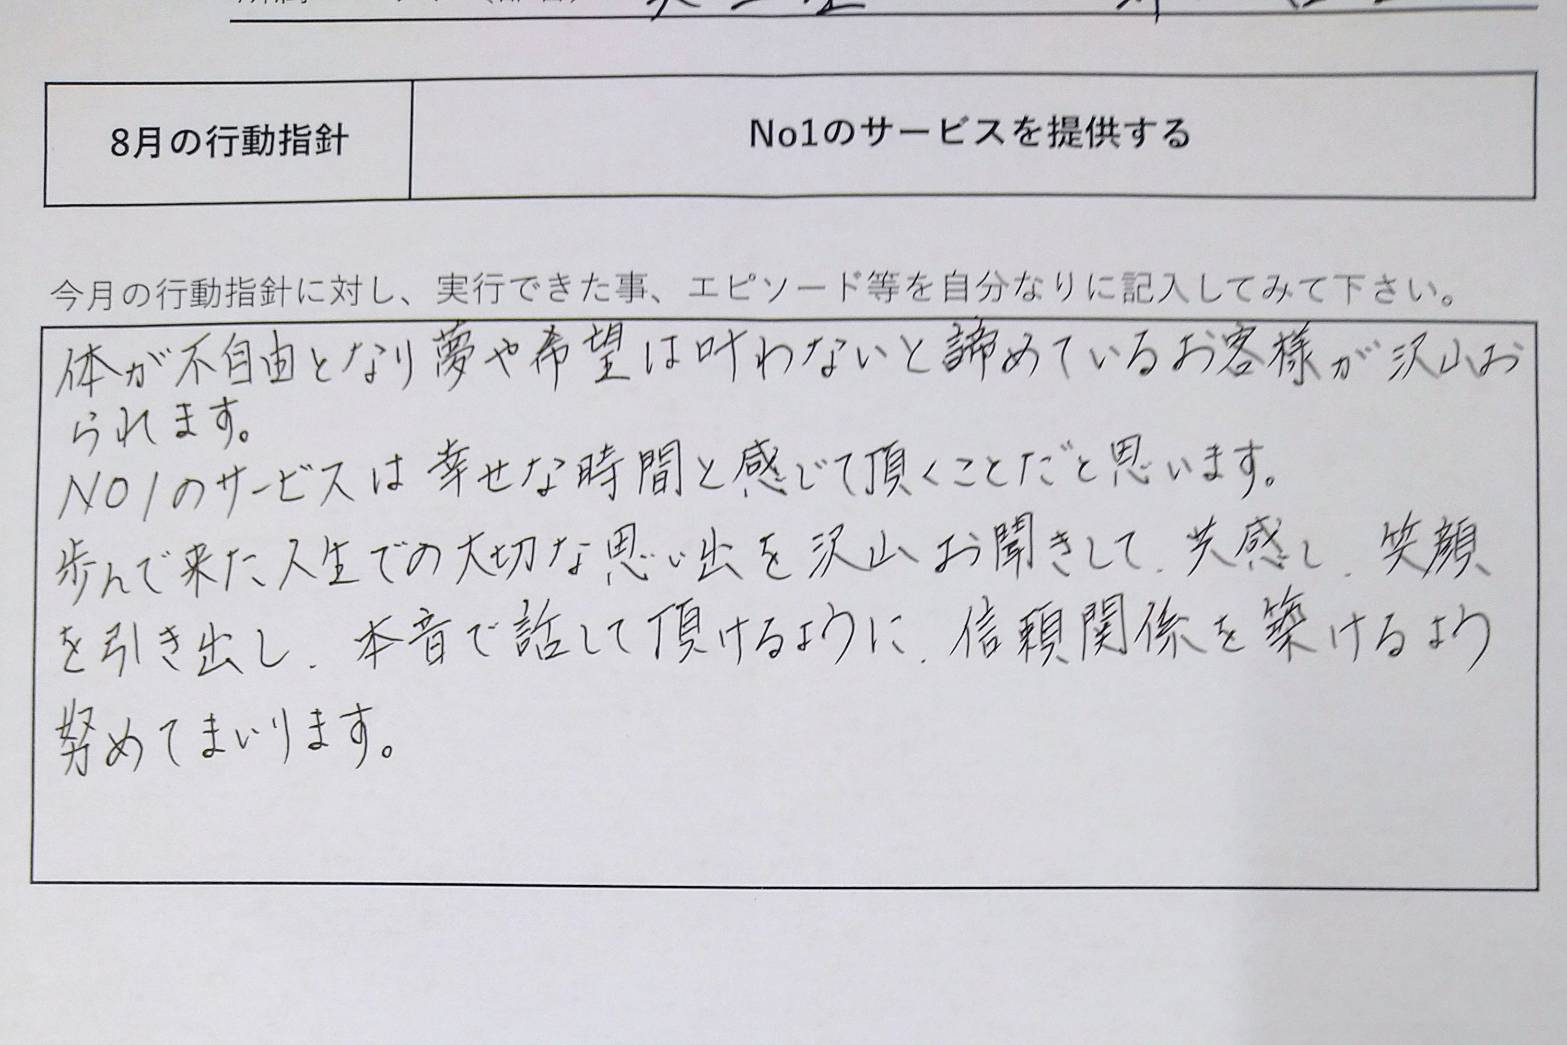 8月の行動指針
No1のサービスを提供する
今月の行動指針に対し、実行できた事、エピソード等を自分なりに記入してみて下さい。
体が不自由となり夢や希望は叶わないと諦めているお客様が沢山お
られます。
NO1のサービスは幸せな時間と感じて頂くことだと思います。
歩んで来た人生での大切な思い出を沢山お聞きして、共感し、笑顔
を引き出し、本音で話して頂けるように、信頼関係を築けるよう
努めてまいります。